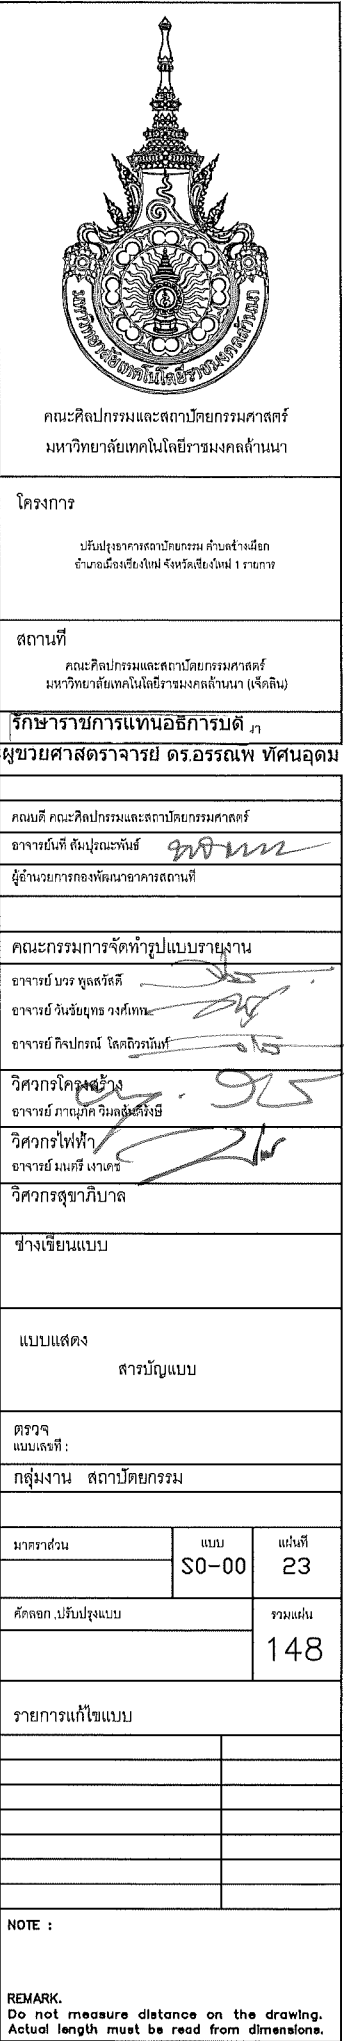 มหาวิทยาลัยเทคโนโลยีราชมงคลล้านนา
คณะศิลปกรรมและสถาปัตยกรรมศาสตร์
มหาวิทยาลัยเทคโนโลยีราชมงคลล้านนา
โครงการ
ปรับปรุงอาคารสถาปัตยกรรม ตำบลช้างเผือก
อำเภอเมืองเชียงใหม่ จังหวัดเชียงใหม่ 1 รายการ
สถานที่
คณะศิลปกรรมและสถาปัตยกรรมศาสตร์
มหาวิทยาลัยเทคโนโลยีราชมงคลล้านนา (เจ็ดลิน)
รักษาราชการแทนอธิการบดี
ผู้ช่วยศาสตราจารย์ ดร.อรรณพ ทัศนอุดม
คณบดี คณะศิลปกรรมและสถาปัตยกรรมศาสตร์
อาจารย์นที สัมปุรณะพันธ์
ผู้อำนวยการกองพัฒนาอาคารสถานที่
คณะกรรมการจัดทำรูปแบบรายงาน
อาจารย์ บวร พูลสวัสดิ์
อาจารย์ วันชัยยุทธ วงศ์เทพ
อาจารย์ กิจปกรณ์ โสตถิวรนันท์
วิศวกรโครงสร้าง
อาจารย์ ภาณุภัค
วิศวกรไฟฟ้า
อาจารย์ มนตรี เงาเดช
วิศวกรสุขาภิบาล
ช่างเขียนแบบ
แบบแสดง
สารบัญแบบ
ตรวจ
แบบเลขที่ :
กลุ่มงาน สถาปัตยกรรม
มาตราส่วน แบบ แผ่นที่
S0-00 23
คัดลอก ,ปรับปรุงแบบ รวมแผ่น
148
รายการแก้ไขแบบ
NOTE :
REMARK.
Do not measure distance on the drawing.
Actual length must be read from dimensions.